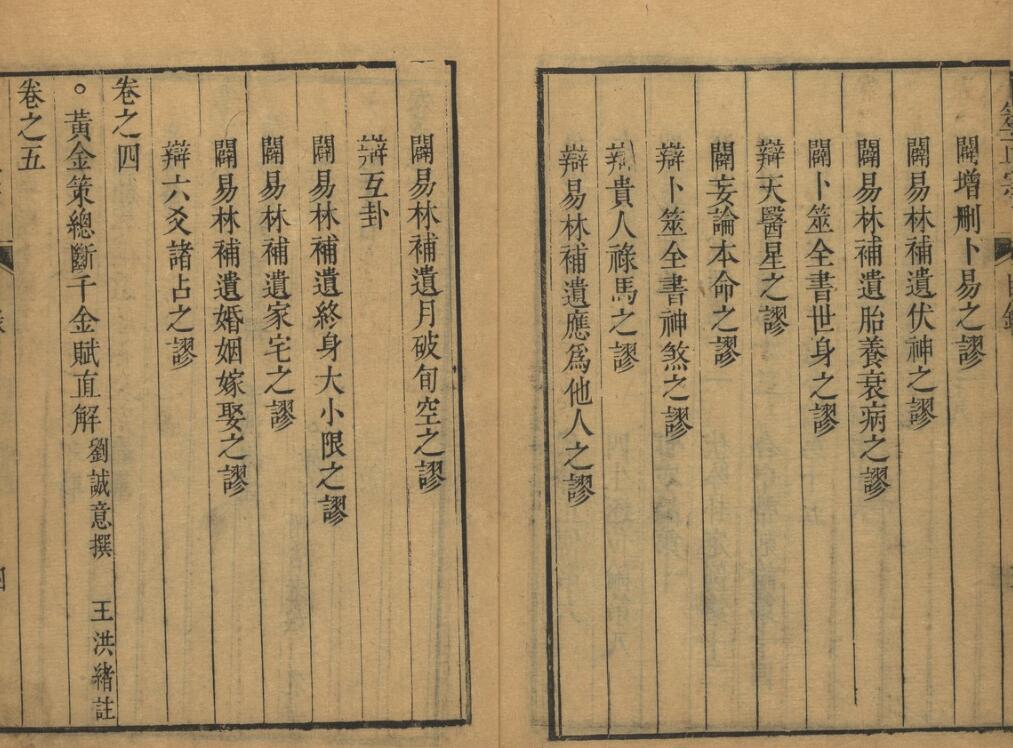 闢增刪卜易之謬
闢易林補遺伏神之謬
闢易林補遺胎養衰病之謬
闢卜筮全書世身之謬
辯天醫星之謬
闢妄論本命之謬
辯卜筮全書神煞之謬
辯貴人祿馬之謬
辯易林補遺應爲他人之謬
闢易林補遺月破旬空之謬
辯互卦
闢易林補遺終身大小限之謬
闢易林補遺家宅之謬
闢易林補遺婚姻嫁娶之謬
辯六爻諸占之謬
卷之四
。黃金策總斷千金賦直解 劉誠意撰 王洪緒註
卷之五